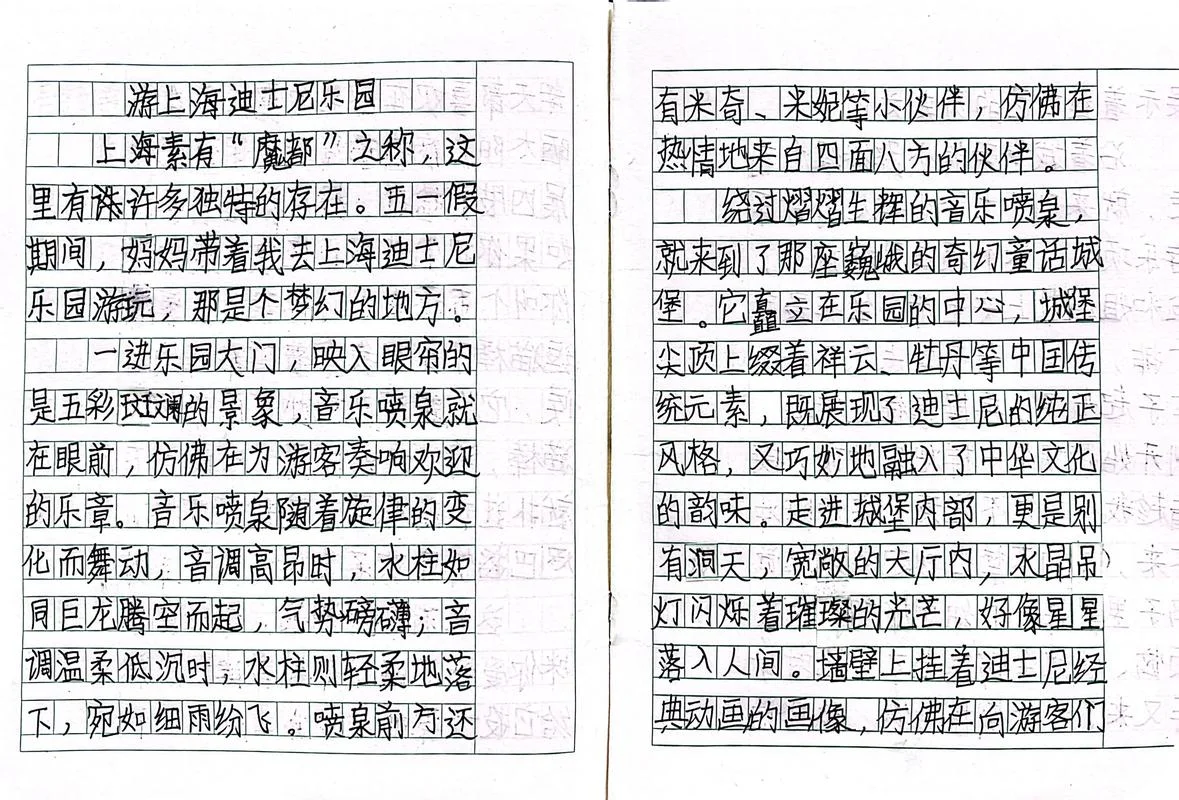 游上海迪士尼乐园
上海素有“魔都”之称，这
里有许多独特的存在。五一假
期间，妈妈带着我去上海迪士尼
乐园游玩，那是个梦幻的地方。
一进乐园大门，映入眼帘的
是五彩斑斓的景象，音乐喷泉就
在眼前，仿佛在为游客奏响欢迎
的乐章。音乐喷泉随着旋律的变
化而舞动，音调高昂时，水柱如
同巨龙腾空而起，气势磅礴；音
调温柔低沉时，水柱则轻柔地落
下，宛如细雨纷飞。喷泉前方还
有米奇、米妮等小伙伴，仿佛在
热情地来自四面八方的伙伴。
绕过熠熠生辉的音乐喷泉，
就来到了那座巍峨的奇幻童话城
堡。它矗立在乐园的中心，城堡
尖顶上缀着祥云、牡丹等中国传
统元素，既展现了迪士尼的纯正
风格，又巧妙地融入了中华文化
的韵味。走进城堡内部，更是别
有洞天，宽敞的大厅内，水晶吊
灯闪烁着璀璨的光芒，好像星星
落入人间。墙壁上挂着迪士尼经
典动画的画像，仿佛在向游客们